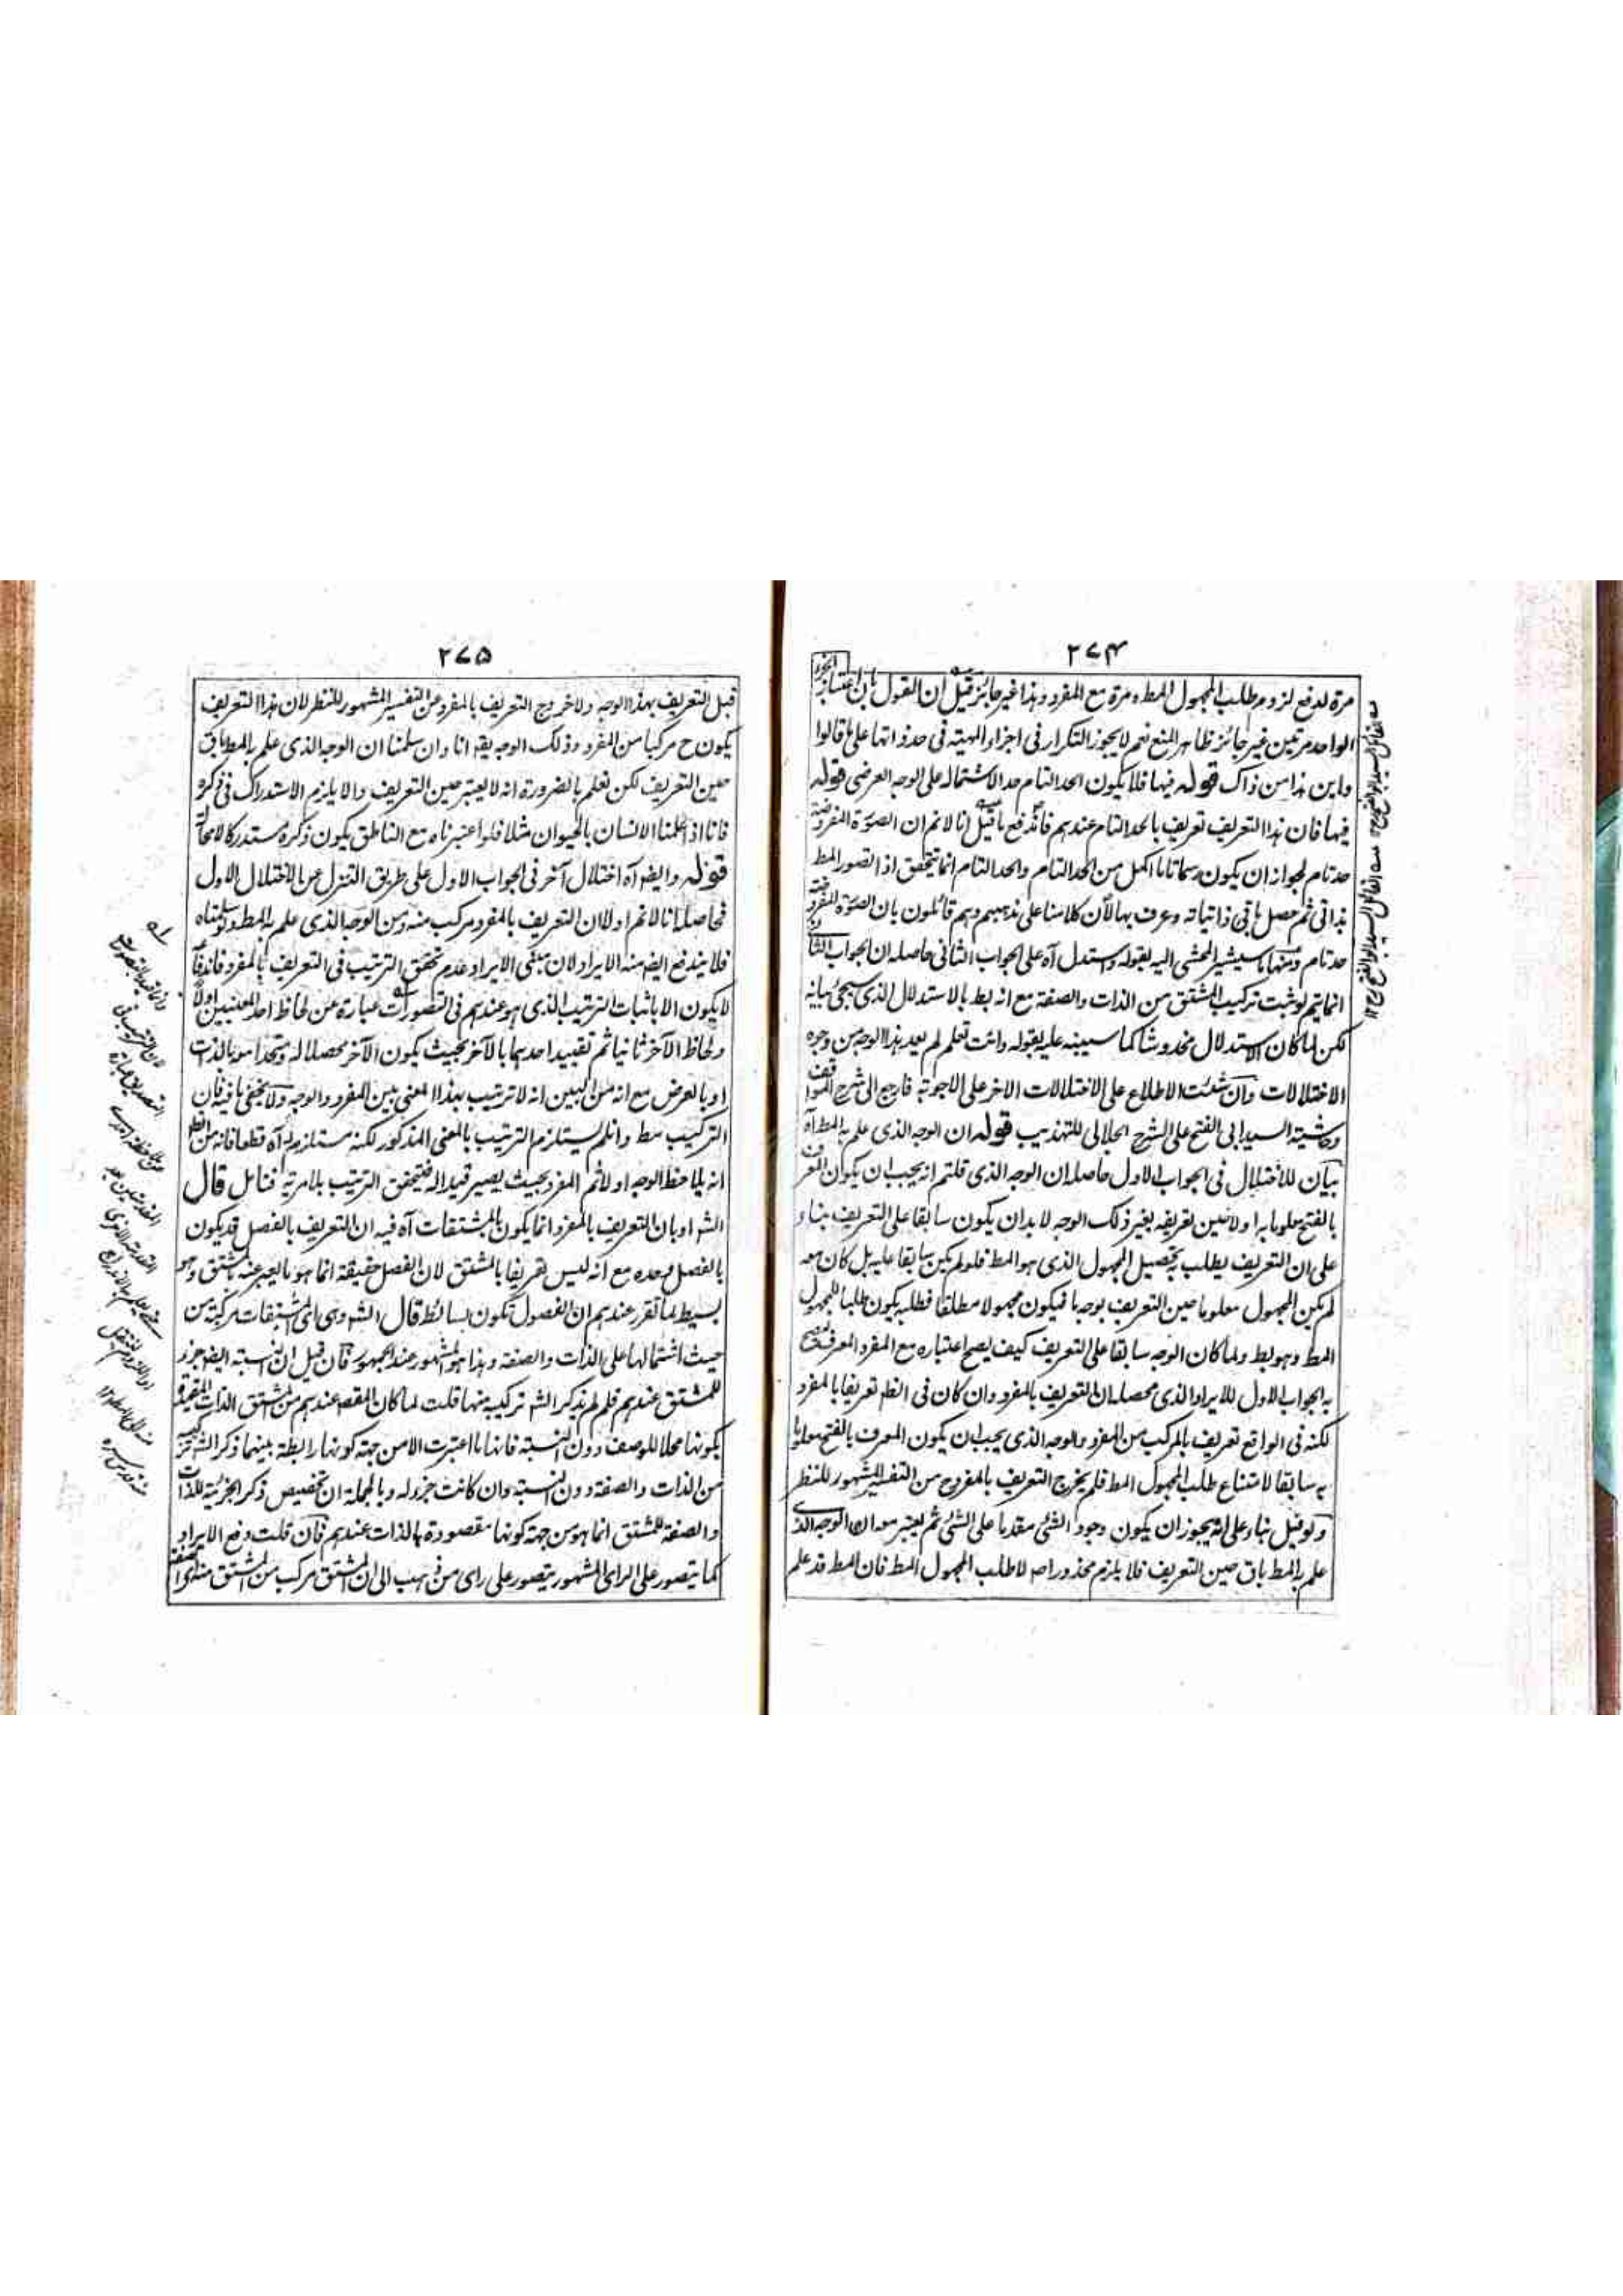 ٢٧٤
مرة لدفع لزوم طلب المجهول المط ومرة مع المفرد وهذا غير جائز قيل ان القول بان اعتبار الجزء
الواحد مرتين غير جائز ظاهر المنع نعم لا يجوز التكرار فى اجزاء المهية فى حد ذاتها على ما قالوا
واين هذا من ذاك قوله فيها فلا يكون الحد التام حدا لاشتماله على الوجه العرضى قوله
فيها فان هذا التعريف تعريف بالحد التام عندهم فاندفع ما قيل انا لا نم ان الصورة المفروضة
حد تام لجواز ان يكون رسما تاما اكمل من الحد التام والحد التام انما يتحقق اذا تصور المط
بذاتى ثم حصل باقى ذاتياته وعرف بها لان كلامنا على مذهبهم وهم قائلون بان الصورة المفروضة
حد تام ومنها ما سيشير المحشى اليه بقوله واستدل آه على الجواب الثانى حاصله ان الجواب الثانى
انما يتم لو ثبت تركيب المشتق من الذات والصفة مع انه بط بالاستدلال الذى سيجئ بيانه
لكن لما كان الاستدلال مخدوشا كما سيبينه عليه بقوله وانت تعلم لم يعد هذا الوجه من وجوه
الاختلالات وان شئت الاطلاع على الاختلالات الاخر على الاجوبة فارجع الى شرح المواقف
وحاشية السيد ابى الفتح على الشرح الجلالى للتهذيب قوله ان الوجه الذى علم به المط آه
بيان للاختلال فى الجواب الاول حاصله ان الوجه الذى قلتم انه يجب ان يكون المعرف
بالفتح معلوما به اولا حين تعريفه بغير ذلك الوجه لا بد ان يكون سابقا على التعريف بناء
على ان التعريف يطلب به تحصيل المجهول الذى هو المط فلو لم يكن سابقا عليه بل كان معه
لم يكن المجهول معلوما حين التعريف بوجه ما فيكون مجهولا مطلقا فطلبه يكون طلبا للمجهول
المط وهو بط ولما كان الوجه سابقا على التعريف كيف يصح اعتباره مع المفرد المعرف ليصح
به الجواب الاول للايراد الذى محصله ان التعريف بالمفرد وان كان فى الظ تعريفا بالمفرد
لكنه فى الواقع تعريف بالمركب من المفرد والوجه الذى يجب ان يكون المعرف بالفتح معلوما
به سابقا لامتناع طلب المجهول المط فلم يخرج التعريف بالمفرد من التفسير المشهور للنظر
ولو قيل بناء على انه يجوز ان يكون وجود الشئ مقدما على الشئ ثم يعتبر معه ان الوجه الذى
علم به المط باق حين التعريف فلا يلزم محذور اصلا لا طلب المجهول المط فان المط قد علم
٢٧٥
قبل التعريف بهذا الوجه ولا خروج التعريف بالمفرد عن التفسير المشهور للنظر لان هذا التعريف
يكون ح مركبا من المفرد وذلك الوجه يقه انا وان سلمنا ان الوجه الذى علم به المط باق
حين التعريف لكن نعلم بالضرورة انه لا يعتبر حين التعريف والا يلزم الاستدراك فى ذكره
فانا اذا علمنا الانسان بالحيوان مثلا فلو اعتبرناه مع الناطق يكون ذكره مستدركا لا محالة
قوله وايضه آه اختلال آخر فى الجواب الاول على طريق التنزل عن الاختلال الاول
فحاصله انا لا نم اولا ان التعريف بالمفرد مركب منه ومن الوجه الذى علم به المط ولو سلمناه
فلا يندفع ايضه منه الايراد لان مبنى الايراد عدم تحقق الترتيب فى التعريف بالمفرد فاندفاعه
لا يكون الا باثبات الترتيب الذى هو عندهم فى التصورات عبارة عن لحاظ احد المعنيين اولا
ولحاظ الآخر ثانيا ثم تقييد احدهما بالآخر بحيث يكون الآخر محصلا له ومتحدا معه بالذات
او بالعرض مع انه من البين انه لا ترتيب بهذا المعنى بين المفرد والوجه ولا يخفى ما فيه فان
التركيب مط وان لم يستلزم الترتيب بالمعنى المذكور لكنه مستلزم له آه قطعا فانه من الظ
انه يلاحظ الوجه اولا ثم المفرد بحيث يصير قيدا له فيتحقق الترتيب بلا مرية فتامل قال
الشه او بان التعريف بالمفرد انما يكون بالمشتقات آه فيه ان التعريف بالفصل قد يكون
بالفصل وحده مع انه ليس تعريفا بالمشتق لان الفصل حقيقة انما هو ما يعبر عنه بالمشتق وهو
بسيط لما تقرر عندهم ان الفصول تكون بسائط قال الشه وهى اى المشتقات مركبة من
حيث اشتمالها على الذات والصفة وهذا هو المشهور عند الجمهور فان قيل ان النسبة ايضه جزء
للمشتق عندهم فلم لم يذكر الشه تركيبه منها قلت لما كان المقصه عندهم من المشتق الذات المقيدة
بكونها محلا للوصف دون النسبة فانها ما اعتبرت الا من جهة كونها رابطة بينهما ذكر الشه تركيبه
من الذات والصفة دون النسبة وان كانت جزء له وبالجملة ان تخصيص ذكر الجزئية للذات
والصفة للمشتق انما هو من جهة كونها مقصودة بالذات عندهم فان قلت دفع الايراد
كما يتصور على الراى المشهور يتصور على راى من ذهب الى ان المشتق مركب من المشتق منه اى الصفة